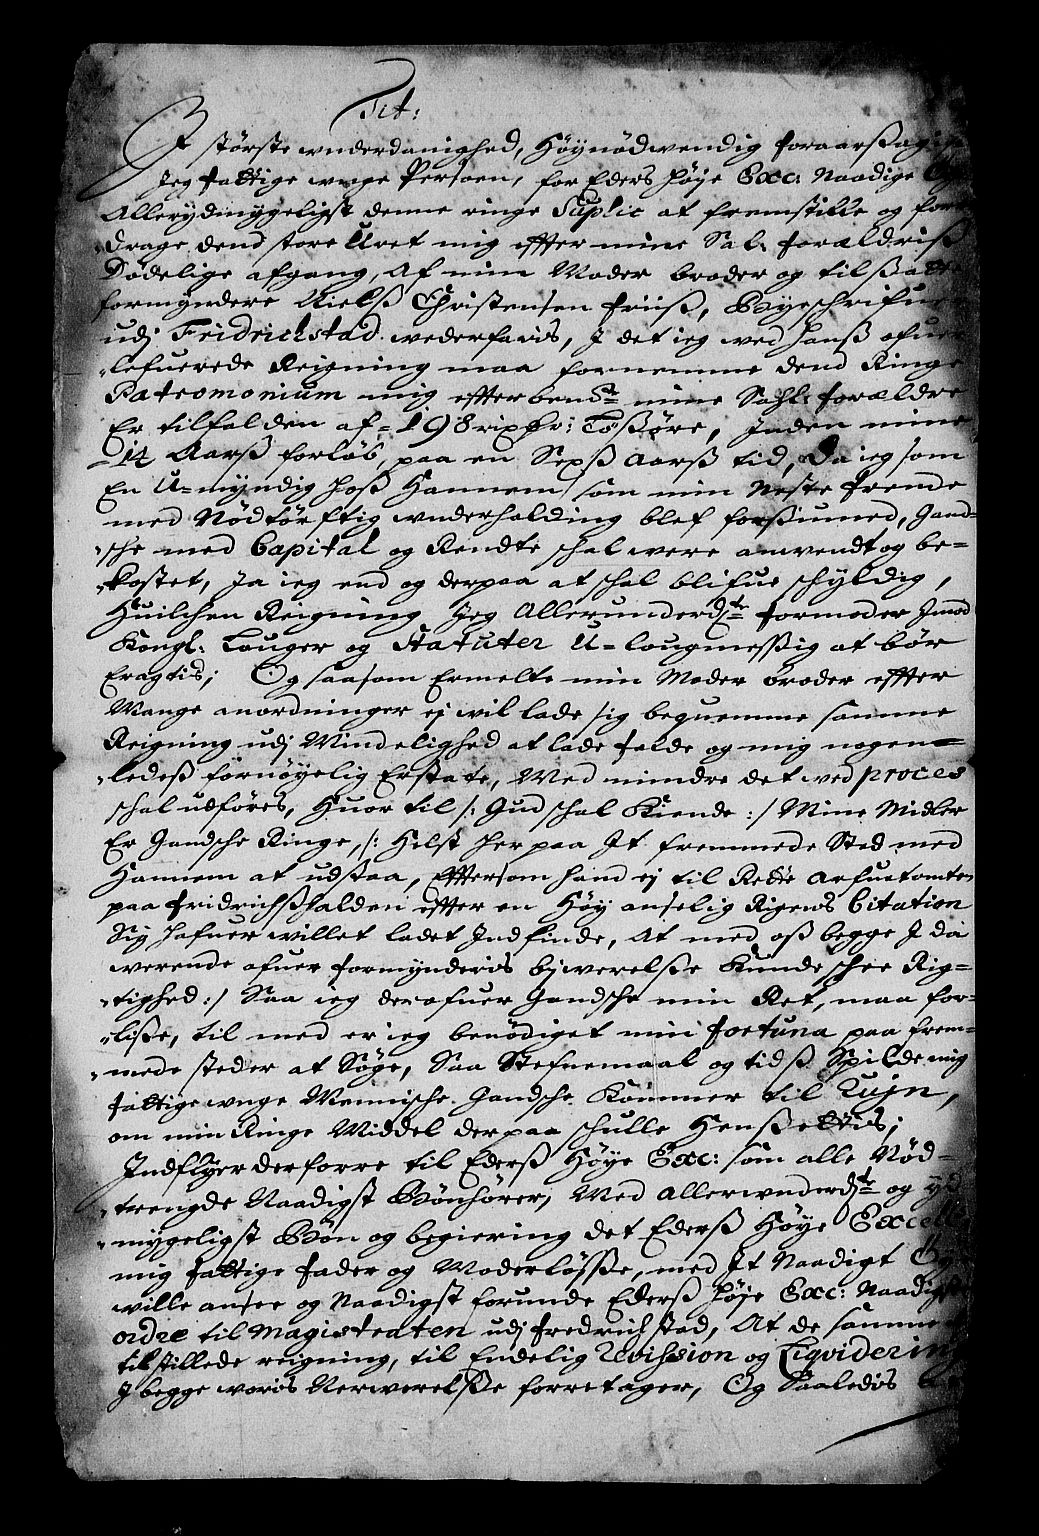 Tit:
I største wnderdanighed, Høynødwendig foraarßagis
Jeg fattige wnge Persoen, for Eders høye Exc: Naadige
Allerydmygeligst denne ringe Suplic at fremstille og fore
drage, dend store Uret mig effter mine Sal. forældriß
Dødelige afgang, Af min Moder broder og tilsatte
formyndere Nielß Christensen friiß, Byeschrifuer
udj Fridrichstad wederfaris, J det ieg wed hanß ofuer
„lefuerede Reigning maa fornemme dend Ringe
Patromonium mig effter bem:te mine Sahl: forældre
Er tilfalden af 198 rixdr: Toßøre, Inden mine
14 Aarß forløb, paa en Sexß Aarß tid, Da ieg som
En U-myndig hoß Hannem som min Neste frende
med Nødtørfftig wnderholding blef forsiuned, Gand-
„sche med Capital og Rendte schal were anwendt og be-
„kostet, Ja ieg end og derpaa at schal blifue schyldig,
Huilchen Reigning Jeg Allerunderd:te formoder Jmod
Kongl: Louger og Statuter U-lougmessig at bør
Eragtis; Og saasom Ermelte min Moder broder effter
Mange anordninger ej wil lade sig bequemme samme
Reigning udj Mindelighed at lade falde og mig nogen-
„ledeß fornøyelig Erstate, Med mindre det wed proces
schal udføres, Huor til /: Gud schal Kiende :/ Mine Midler
Er Gandsche Ringe, /: Helst her paa It fremmede Sted med
Hannem at udstaa, Efftersom hand ej til Rette Arfuetomten
paa fridrichßhalden effter en Høy anselig Rigens Citation
Sig hafuer willet ladet Indfinde, At med oß begge J da
werende ofuer formynderis bjwerelße Kunde schee Rig-
„tighed :/ Saa ieg derofuer Gandsche min Ret, maa for-
„liße, til med er ieg benødiget min fortuna paa frem-
„mede steder at Søge, Saa Stefnemaal og tidß Spilde mig
fattige wnge Mennische Gandsche Kommer til Ruin,
om min Ringe Middel derpaa schulle Henßettis;
Indflyer derforre til Ederß Høye Exc: som alle Nød-
„trengde Naadigst Bønhører, Med Allerwnderd:te og yd
„mygeligst Bøn og begiering det Ederß Høye Excell
mig fattige fader og Moderløsse, med It Naadigt
wille ansee og Naadigst forunde Ederß høye Exc: Naadigste
ordre til Magistraten udj fredrichstad, At de samme
til stillede reigning, til Endelig Revission og Liqvidering
J begge woris Nerwerelße forretager, Og Saaledis